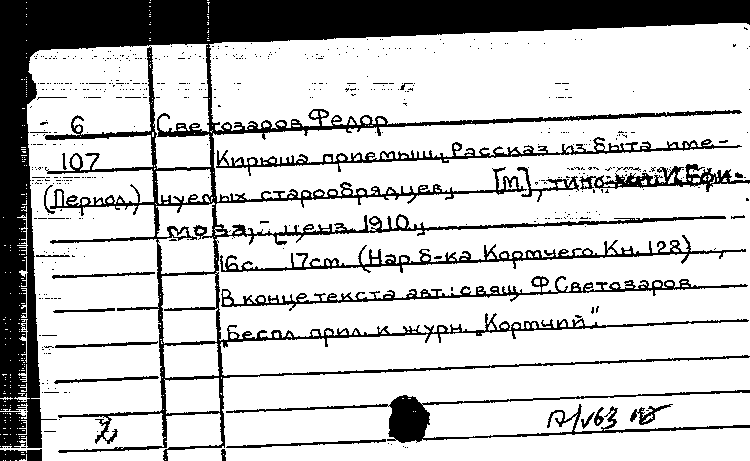 6 Светозаров, Федор
107 Кирюша приемыш. Рассказ из быта име-
(Период.) нуемых старообрядцев. [М], типо-лит. И. Ефи-
мова, ценз. 1910.
16с. 17см. (Нар. б-ка Кормчего. Кн. 128)
В конце текста авт.: свящ. Ф. Светозаров.
Беспл. прил. к журн. „Кормчий“.